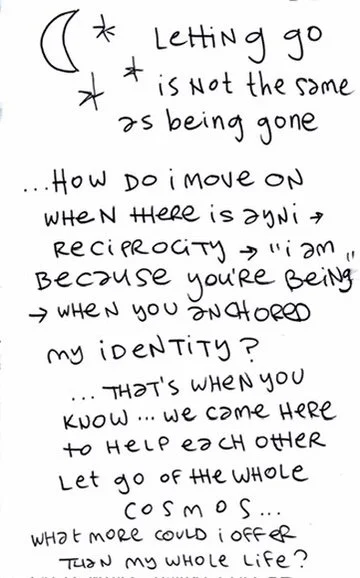 Letting go
is not the same
as being gone
...How do i move on
when there is ayni →
reciprocity → "i am
because you're being"
→ when you anchored
my identity?
... that's when you
know ... we came here
to help each other
Let go of the whole
cosmos...
what more could i offer
than my whole life?